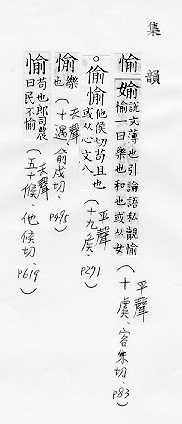 集韻
愉媮說文薄也引論語私覿愉愉一曰樂也和也或从女(平聲 十虞、容朱切、P83)
。偷愉他侯切苟且也或从心文八(平聲 十九矦、P271)
愉樂也(去聲 十遇、俞戍切、P495)
愉苟也鄭司農曰民不愉(去聲 五十候、他候切、P619)